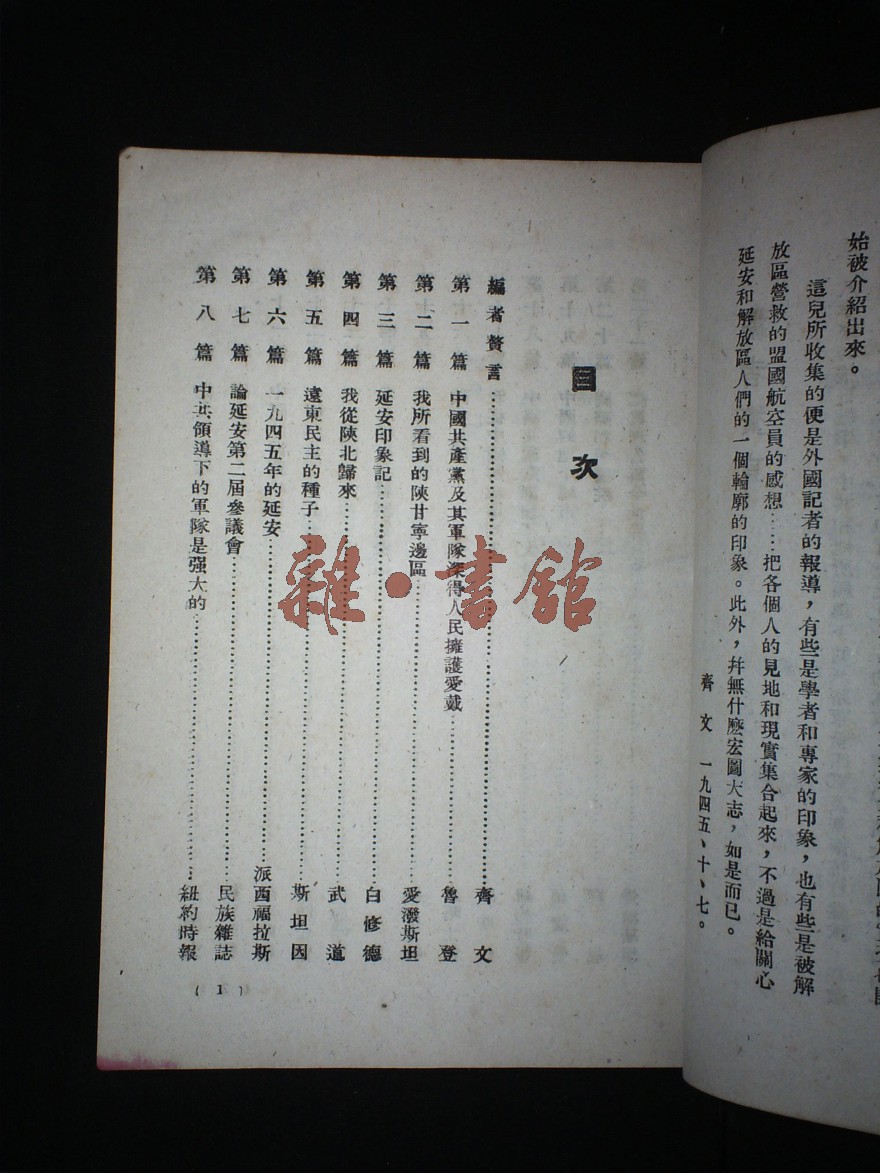 始被介紹出來。
這兒所收集的便是外國記者的報導，有些是學者和專家的印象，也有些是被解
放區營救的盟國航空員的感想……把各個人的見地和現實集合起來，不過是給關心
延安和解放區人們的一個輪廓的印象。此外，幷無什麽宏圖大志，如是而已。
齊文 一九四五、十、七。
目次
編者贅言……齊文
第一篇 中國共產黨及其軍隊深得人民擁護愛戴……魯登
第二篇 我所看到的陝甘寧邊區……愛潑斯坦
第三篇 延安印象記……白修德
第四篇 我從陝北歸來……武道
第五篇 遠東民主的種子……斯坦因
第六篇 一九四五年的延安……派西福拉斯
第七篇 論延安第二屆參議會……民族雜誌
第八篇 中共領導下的軍隊是强大的……紐約時報
(1)
雜·書館